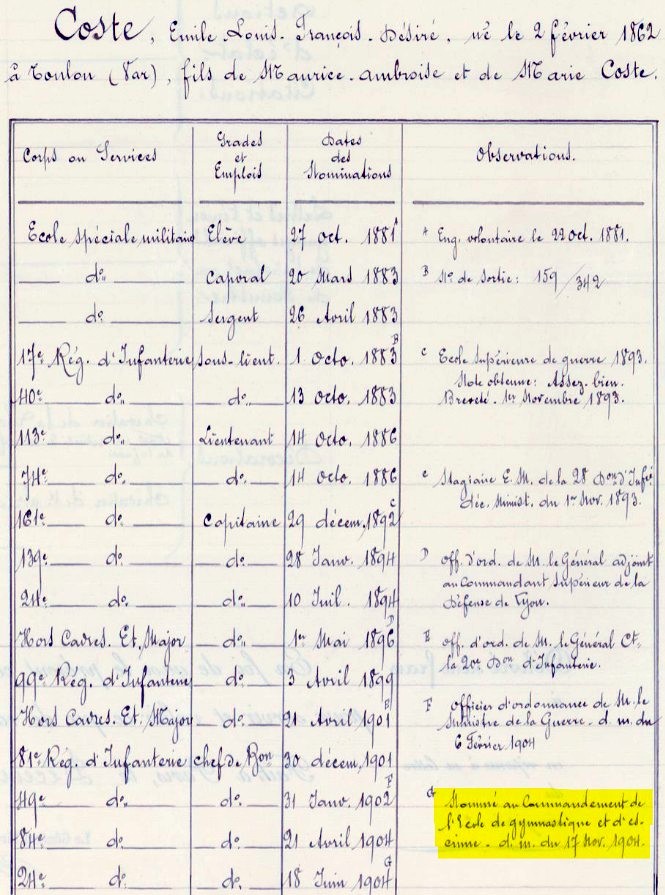 Coste, Emile-Louis-François-Désiré, né le 2 février 1862
à Toulon (Var), fils de Maurice-Ambroise et de Marie Coste.
Corps ou Services | Grades et Emplois | Dates des Nominations | Observations.
Ecole spéciale militaire | Elève | 27 oct. 1881 A | A Eng. volontaire le 22 oct. 1881.
do. | Caporal | 20 Mars 1883 | B No de sortie: 159/342
do. | Sergent | 26 Avril 1883
17e Rég. d'Infanterie | Sous-lieut. | 1 octo. 1883 B | C Ecole Supérieure de guerre 1893.
Note obtenue: Assez-bien.
40e do. | do. | 13 octo. 1883 | Breveté. 1er Novembre 1893.
113e do. | Lieutenant | 14 octo. 1886
74e do. | do. | 14 octo. 1886 | C Stagiaire E. M. de la 28 Don d'Infie
déc. Minist. du 1er Nov. 1893.
161e do. | Capitaine | 29 décem. 1892 C
139e do. | do. | 28 Janv. 1894 | D off. d'ord. de M. le Général adjoint
au Commandant Supérieur de la
24e do. | do. | 10 Juil. 1894 | défense de Lyon.
Hors Cadres. Et. Major | do. | 1er Mai 1896 D | E off. d'ord. de M. le Général Ct-
la 20e Don d'Infanterie.
99e Rég. d'Infanterie | do. | 3 Avril 1899
Hors Cadres. Et. Major | do. | 21 Avril 1901 E | F Officier d'ordonnance de M. le
Ministre de la Guerre - d. m. du
81e Rég. d'Infanterie | chef de Bon | 30 décem. 1901 | 6 Février 1904
49e do. | do. | 31 Janv. 1902 F | G Nommé au Commandement de
l'Ecole de gymnastique et d'es-
84e do. | do. | 21 Avril 1904 | crime - d. m. du 17 Nov. 1904.
24e do. | do. | 18 Juin 1904 G